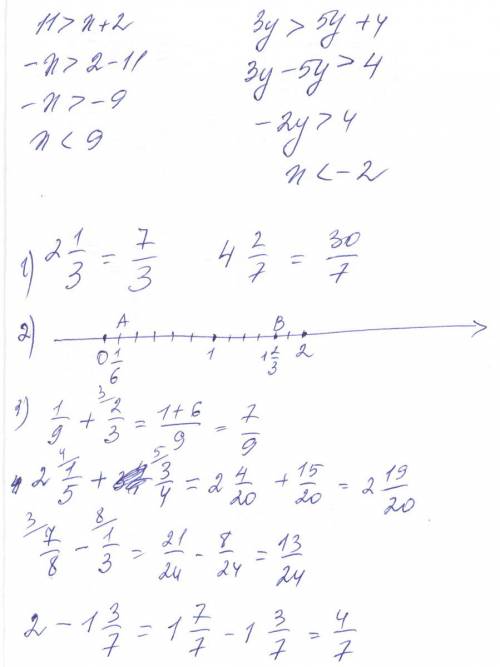 11 > x + 2
-x > 2 - 11
-x > -9
x < 9
3y > 5y + 4
3y - 5y > 4
-2y > 4
x < -2
1) 2 1/3 = 7/3 4 2/7 = 30/7
2)
A B
0 1/6 1 1 2/3 2
3) 1/9 + 3/ 2/3 = 1+6/9 = 7/9
4/ 2 1/5 + 5/ 3/4 = 2 4/20 + 15/20 = 2 19/20
3/ 7/8 - 8/ 1/3 = 21/24 - 8/24 = 13/24
2 - 1 3/7 = 1 7/7 - 1 3/7 = 4/7